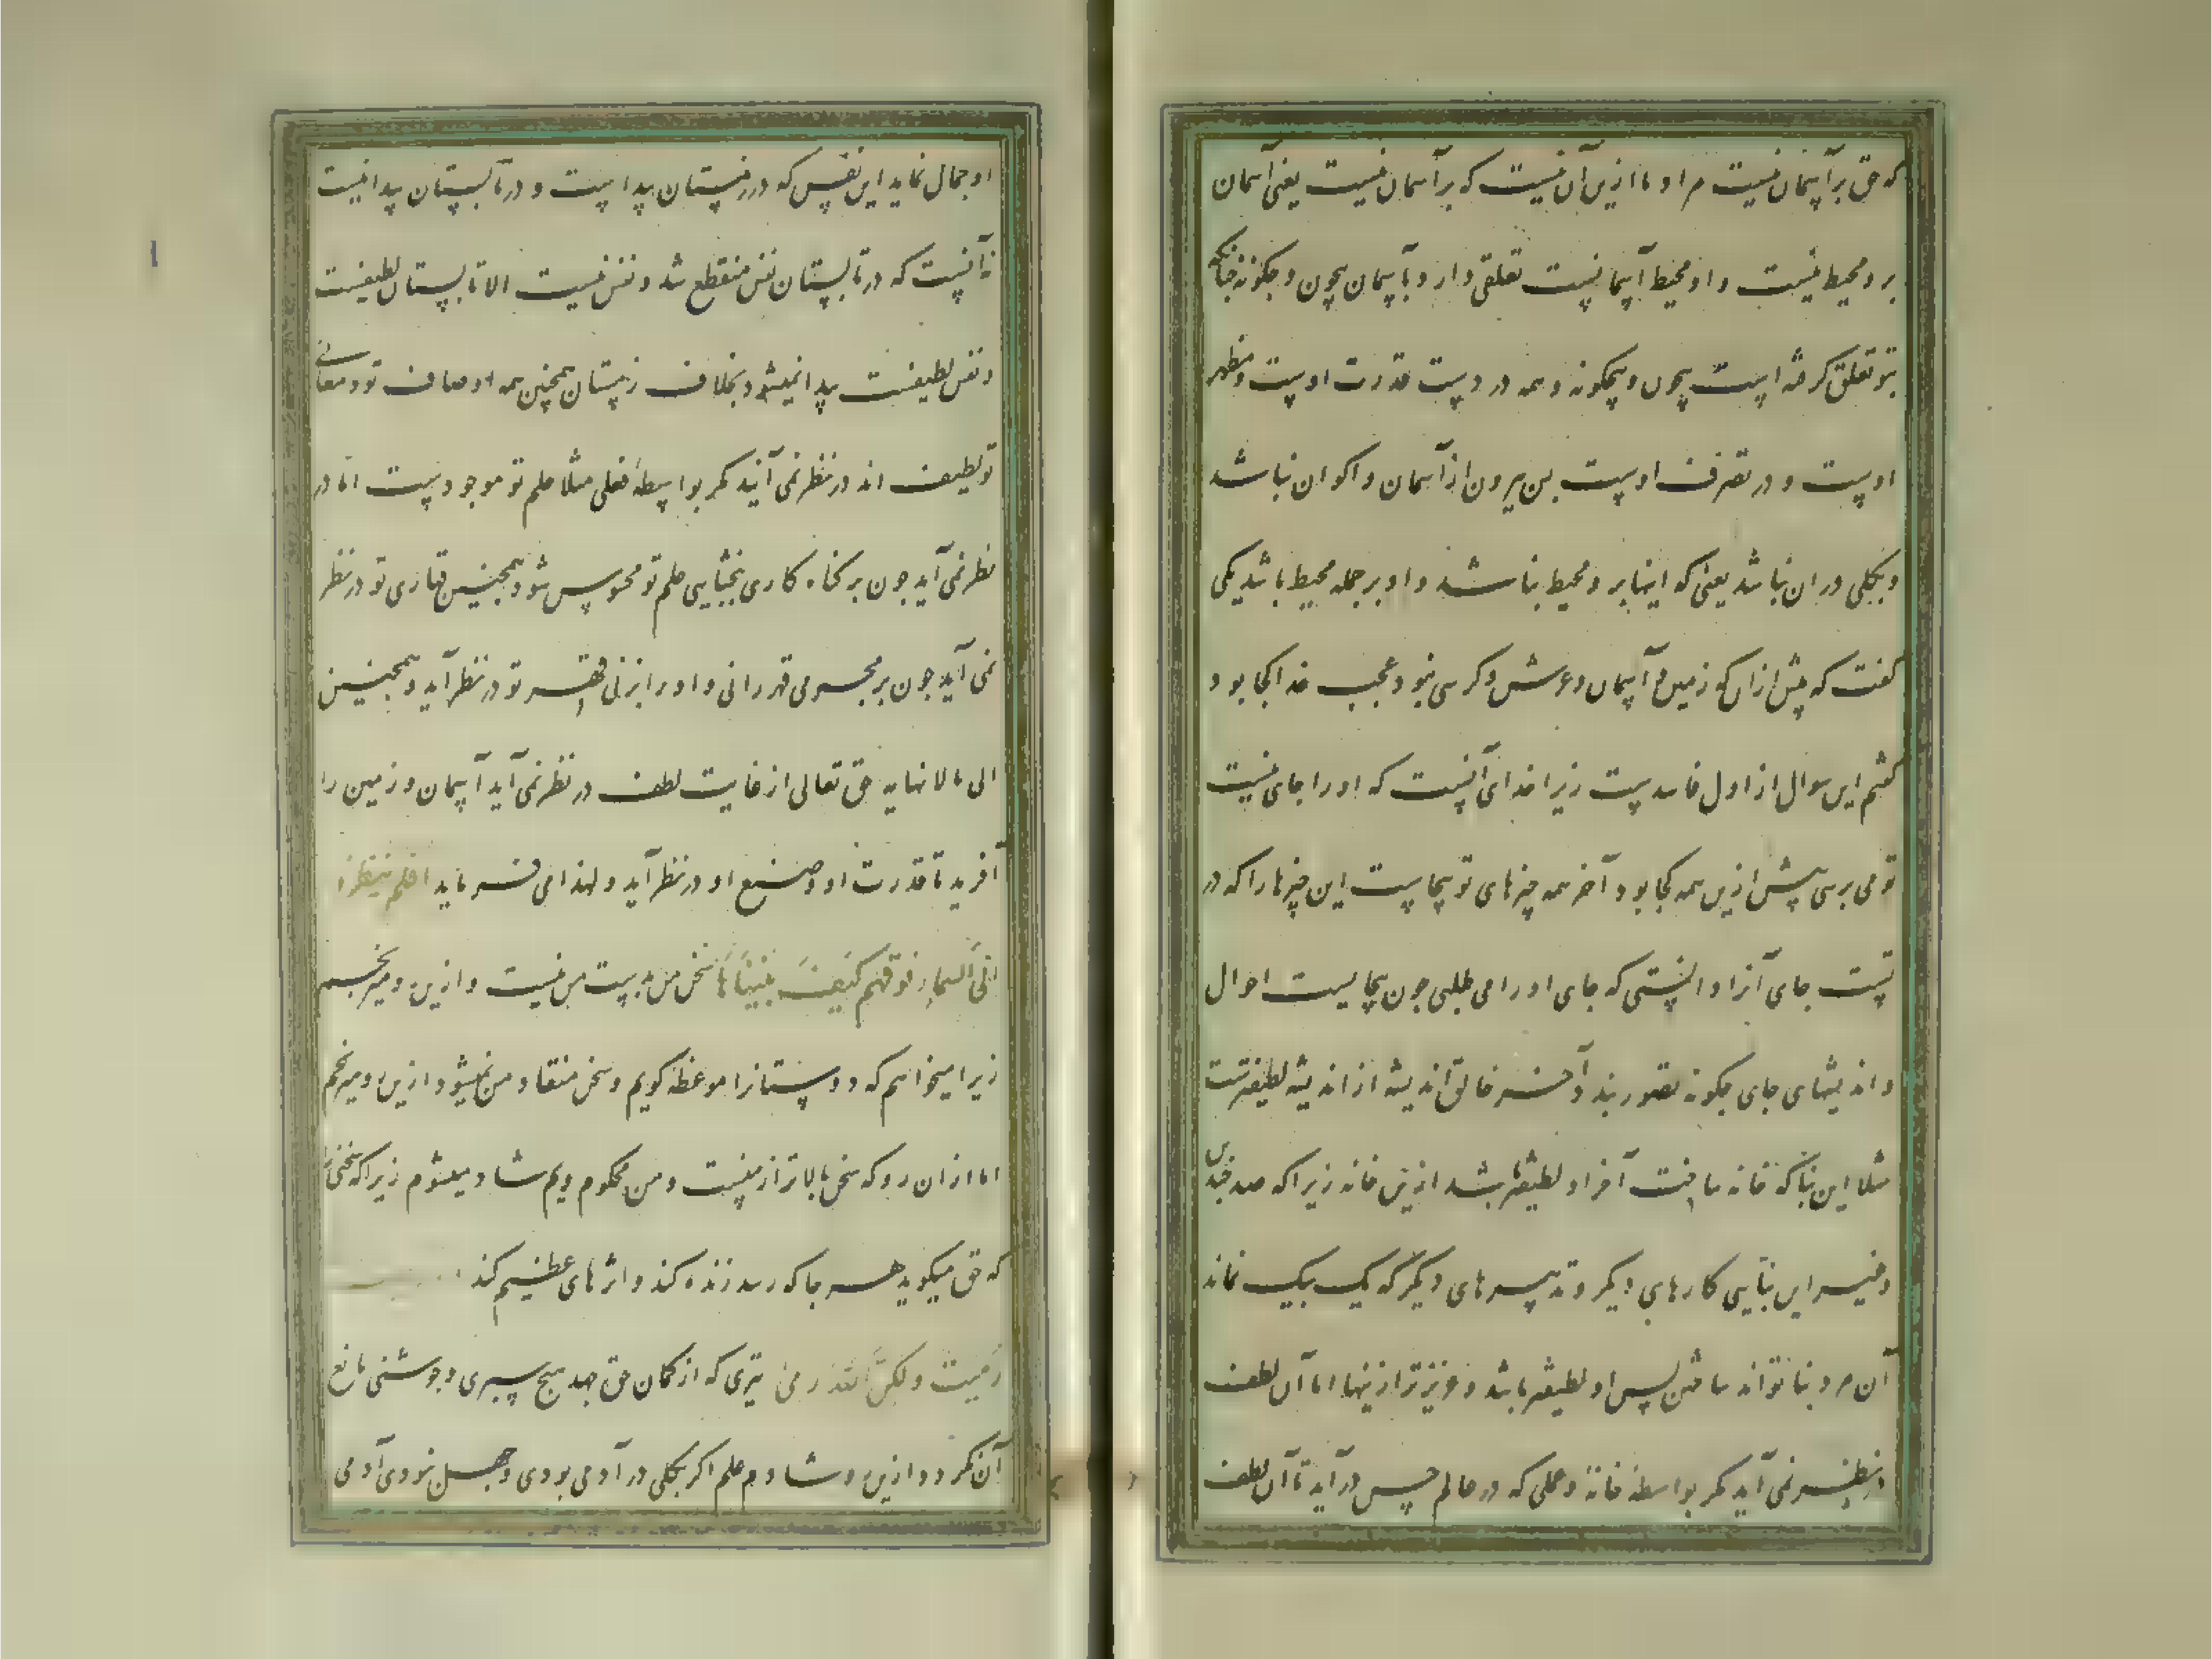 که حق بر آسمان نیست مراد ما ازین آن نیست که بر آسمان نیست یعنی آسمان
برو محیط نیست و او محیط آسمانیست تعلقی دارد بآسمان بیچون و چگونه چنانکه
بتو تعلق کرفته است بیچون و بیچگونه و همه در دست قدرت اوست و مظهر
اوست و در تصرف اوست پس بیرون از آسمان و اکوان نباشد
و بکلی در ان نباشد یعنی که اینها برو محیط نباشد و او بر جمله محیط باشد یکی
کفت که پیش ازان که زمین و آسمان و عرش و کرسی نبود عجب خدا کجا بود
کفتم این سوال از اول فاسدست زیرا خدای آنست که او را جای نیست
تو می پرسی پیش ازین همه کجا بود آخر همه چیزهای تو بیجاست این چیزها را که در
تست جای آنرا دانستی که جای او را می طلبی چون بیجایست احوال
و اندیشهای جای چکونه تصور بندد آخر خالق اندیشه از اندیشه لطیفترست
مثلا این بنا که خانه ساخت آخر او لطیفتر باشد ازین خانه زیرا که صد چندین
و غیر این بنایی کارهای دیکر و تدبیرهای دیکر که یک بیک نماند
آن مرد بنا تواند ساختن پس او لطیفتر باشد و عزیزتر ازینها اما آن لطف
در نظر نمی آید مکر بواسطه خانه و عملی که در عالم حس درآید تا آن لطف
او جمال نماید این نفس که در زمستان پیداست و در تابستان پیدا نیست
نه آنست که در تابستان نفس منقطع شد و نفس نیست الا تابستان لطیفست
و نفس لطیفست پیدا نمیشود بخلاف زمستان همچنین همه اوصاف تو و معانی
تو لطیف اند در نظر نمی آیند مکر بواسطه فعلی مثلا حلم تو موجودست اما در
نظر نمی آید چون بر کناه کاری ببخشایی حلم تو محسوس شود همچنین قهاری تو در نظر
نمی آید چون بر مجرمی قهر رانی و او را بزنی قهر تو در نظر آید و همچنین
الی مالا نهایه حق تعالی از غایت لطف در نظر نمی آید آسمان و زمین را
آفرید تا قدرت او و صنع او در نظر آید و لهذا می فرماید افلم ینظروا
الی السماء فوقهم کیف بنیناها سخن من بدست من نیست و ازین رو میرنجم
زیرا میخواهم که دوستانرا موعظه کویم و سخن منقاد من نمیشود ازین رو میرنجم
اما ازان رو که سخن بالاتر از منست و من محکوم ویم شاد میشوم زیرا که سخنی را
که حق میکوید هر جا که رسد زنده کند و اثرهای عظیم کند
رمیت ولکن الله رمی تیری که از کمان حق جهد هیچ سپری و جوشنی مانع
آن نکردد ازین رو شادم علم اکر بکلی در آدمی بودی و جهل نبودی آدمی